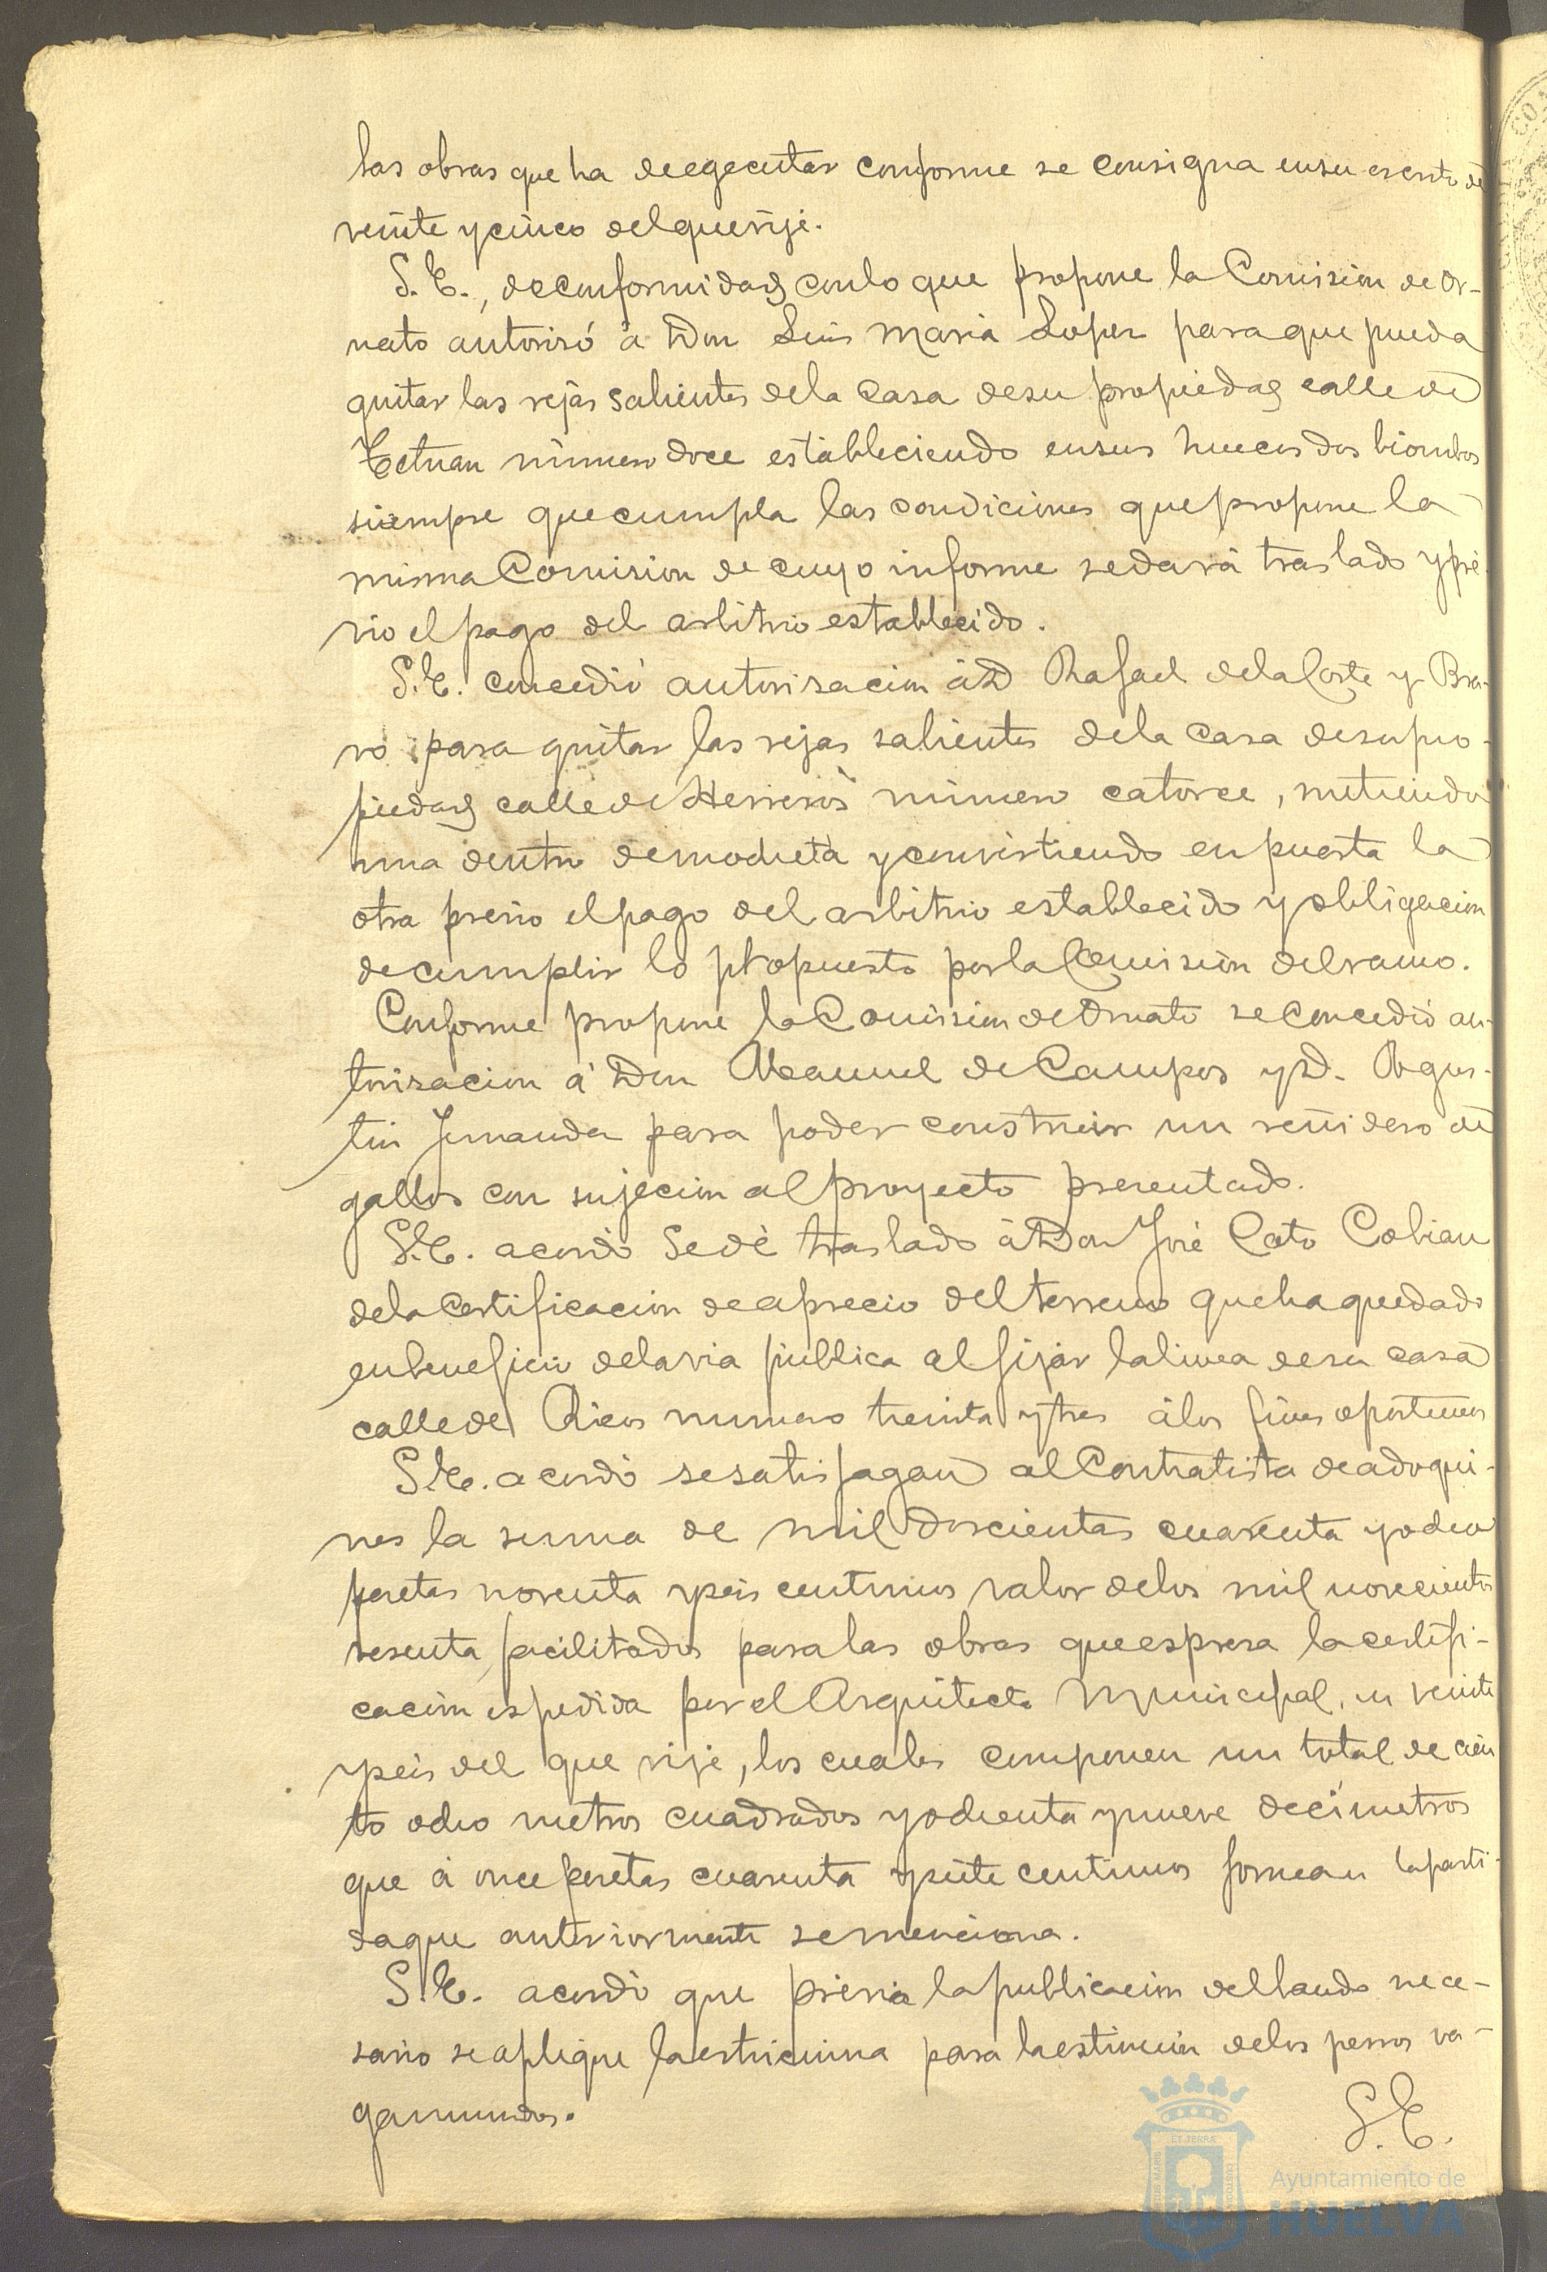 las obras que ha de egecutar conforme se consigna en su escrito de
veinte y cinco del que rije.
S. E., de conformidad con lo que propone la Comision de Or-
nato autorisó á Don Luis Maria Lopez para que pueda
quitar las rejas salientes de la casa de su propiedad calle de
Tetuan número doce estableciendo en sus huecos dos biombos
siempre que cumpla las condiciones que propone la
misma Comision de cuyo informe se dará traslado y pré-
vio el pago del arbitrio establecido.
S. E. concedió autorisacion á D Rafael de la Corte y Bra-
vo para quitar las rejas salientes de la casa de su pro-
piedad calle de Herreros número catorce, metiendo
una dentro de mocheta y convirtiendo en puerta la
otra prévio el pago del arbitrio establecido y obligacion
de cumplir lo propuesto por la Comision del ramo.
Conforme propone la Comision de Ornato se concedió au-
torisacion á Don Manuel de Campos y D. Agus-
tin para poder construir un reñidero de
gallos con sujecion al proyecto presentado.
S. E. acordó se dé traslado á Don José Coto Cobian
de la certificacion de aprecio del terreno que ha quedado
en beneficio de la via pública al fijar la linea de su casa
calle de Ricos numero treinta y tres á los fines oportunos
S. E. acordó se satisfagan al Contratista de adoqui-
nes la suma de mil doscientas cuarenta y ocho
pesetas noventa y seis centimos valor de los mil novecientos
sesenta facilitados para las obras que espresa la certifi-
cacion espedida por el Arquitecto Municipal, en veinte
y seis del que rije, los cuales componen un total de cien
to ocho metros cuadrados y ochenta y nueve decímetros
que á once pesetas cuarenta y siete centimos forman la parti-
da que anteriormente se menciona.
S. E. acordó que prévia la publicacion del bando nece-
sario se aplique la estricnina para la estincion de los perros va-
gamundos.
S. E.
ET TERRÆ
Ayuntamiento de
HUELVA